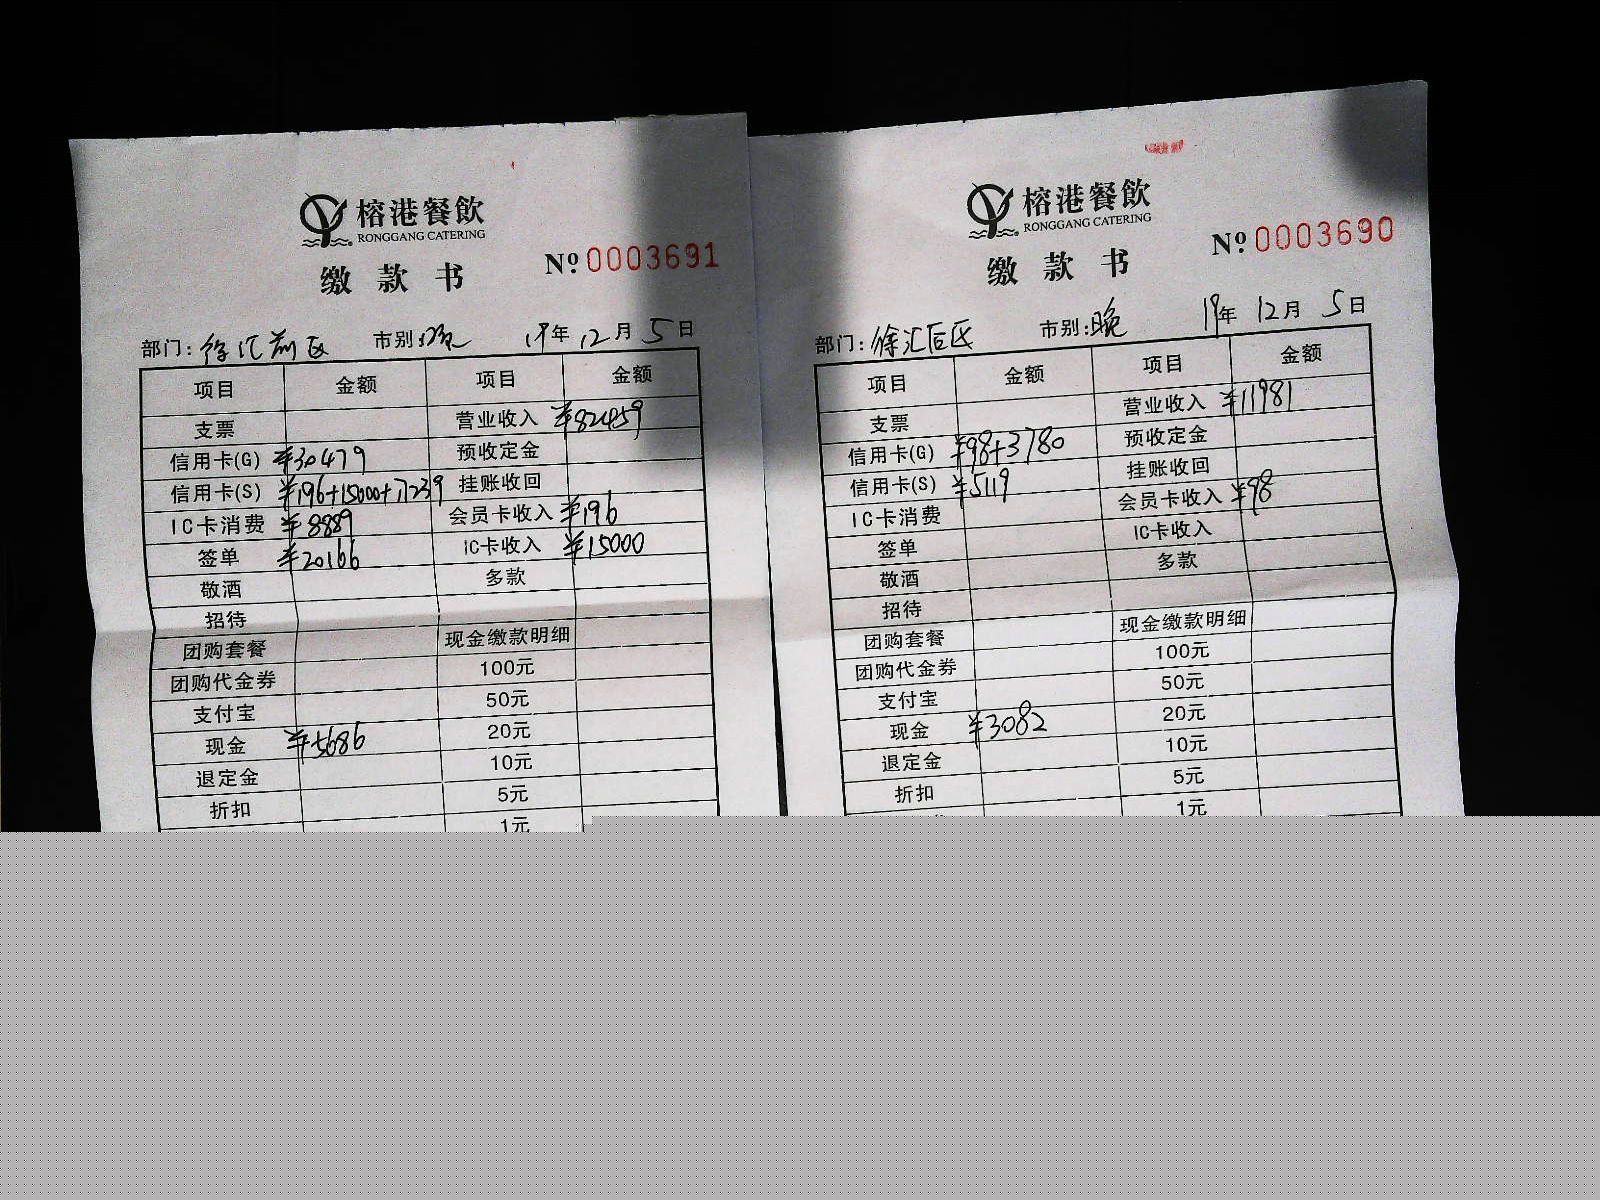 榕港餐飲
RONGGANG CATERING
缴款书
№ 0003691
部门: 徐汇前区 市别: 晚 19年 12月 5日
项目 金额 项目 金额
支票 营业收入 ¥82459
信用卡(G) ¥30479 预收定金
信用卡(S) ¥196+15000+17239 挂账收回
IC卡消费 ¥8889 会员卡收入 ¥196
签单 ¥20166 IC卡收入 ¥15000
敬酒 多款
招待
团购套餐 现金缴款明细
团购代金券 100元
支付宝 50元
现金 ¥5686 20元
退定金 10元
折扣 5元
1元
榕港餐飲
RONGGANG CATERING
缴款书
№ 0003690
部门: 徐汇后区 市别: 晚 19年 12月 5日
项目 金额 项目 金额
支票 营业收入 ¥11981
信用卡(G) ¥98+3780 预收定金
信用卡(S) ¥5119 挂账收回
IC卡消费 会员卡收入 ¥98
签单 IC卡收入
敬酒 多款
招待
团购套餐 现金缴款明细
团购代金券 100元
支付宝 50元
现金 ¥3082 20元
退定金 10元
折扣 5元
1元